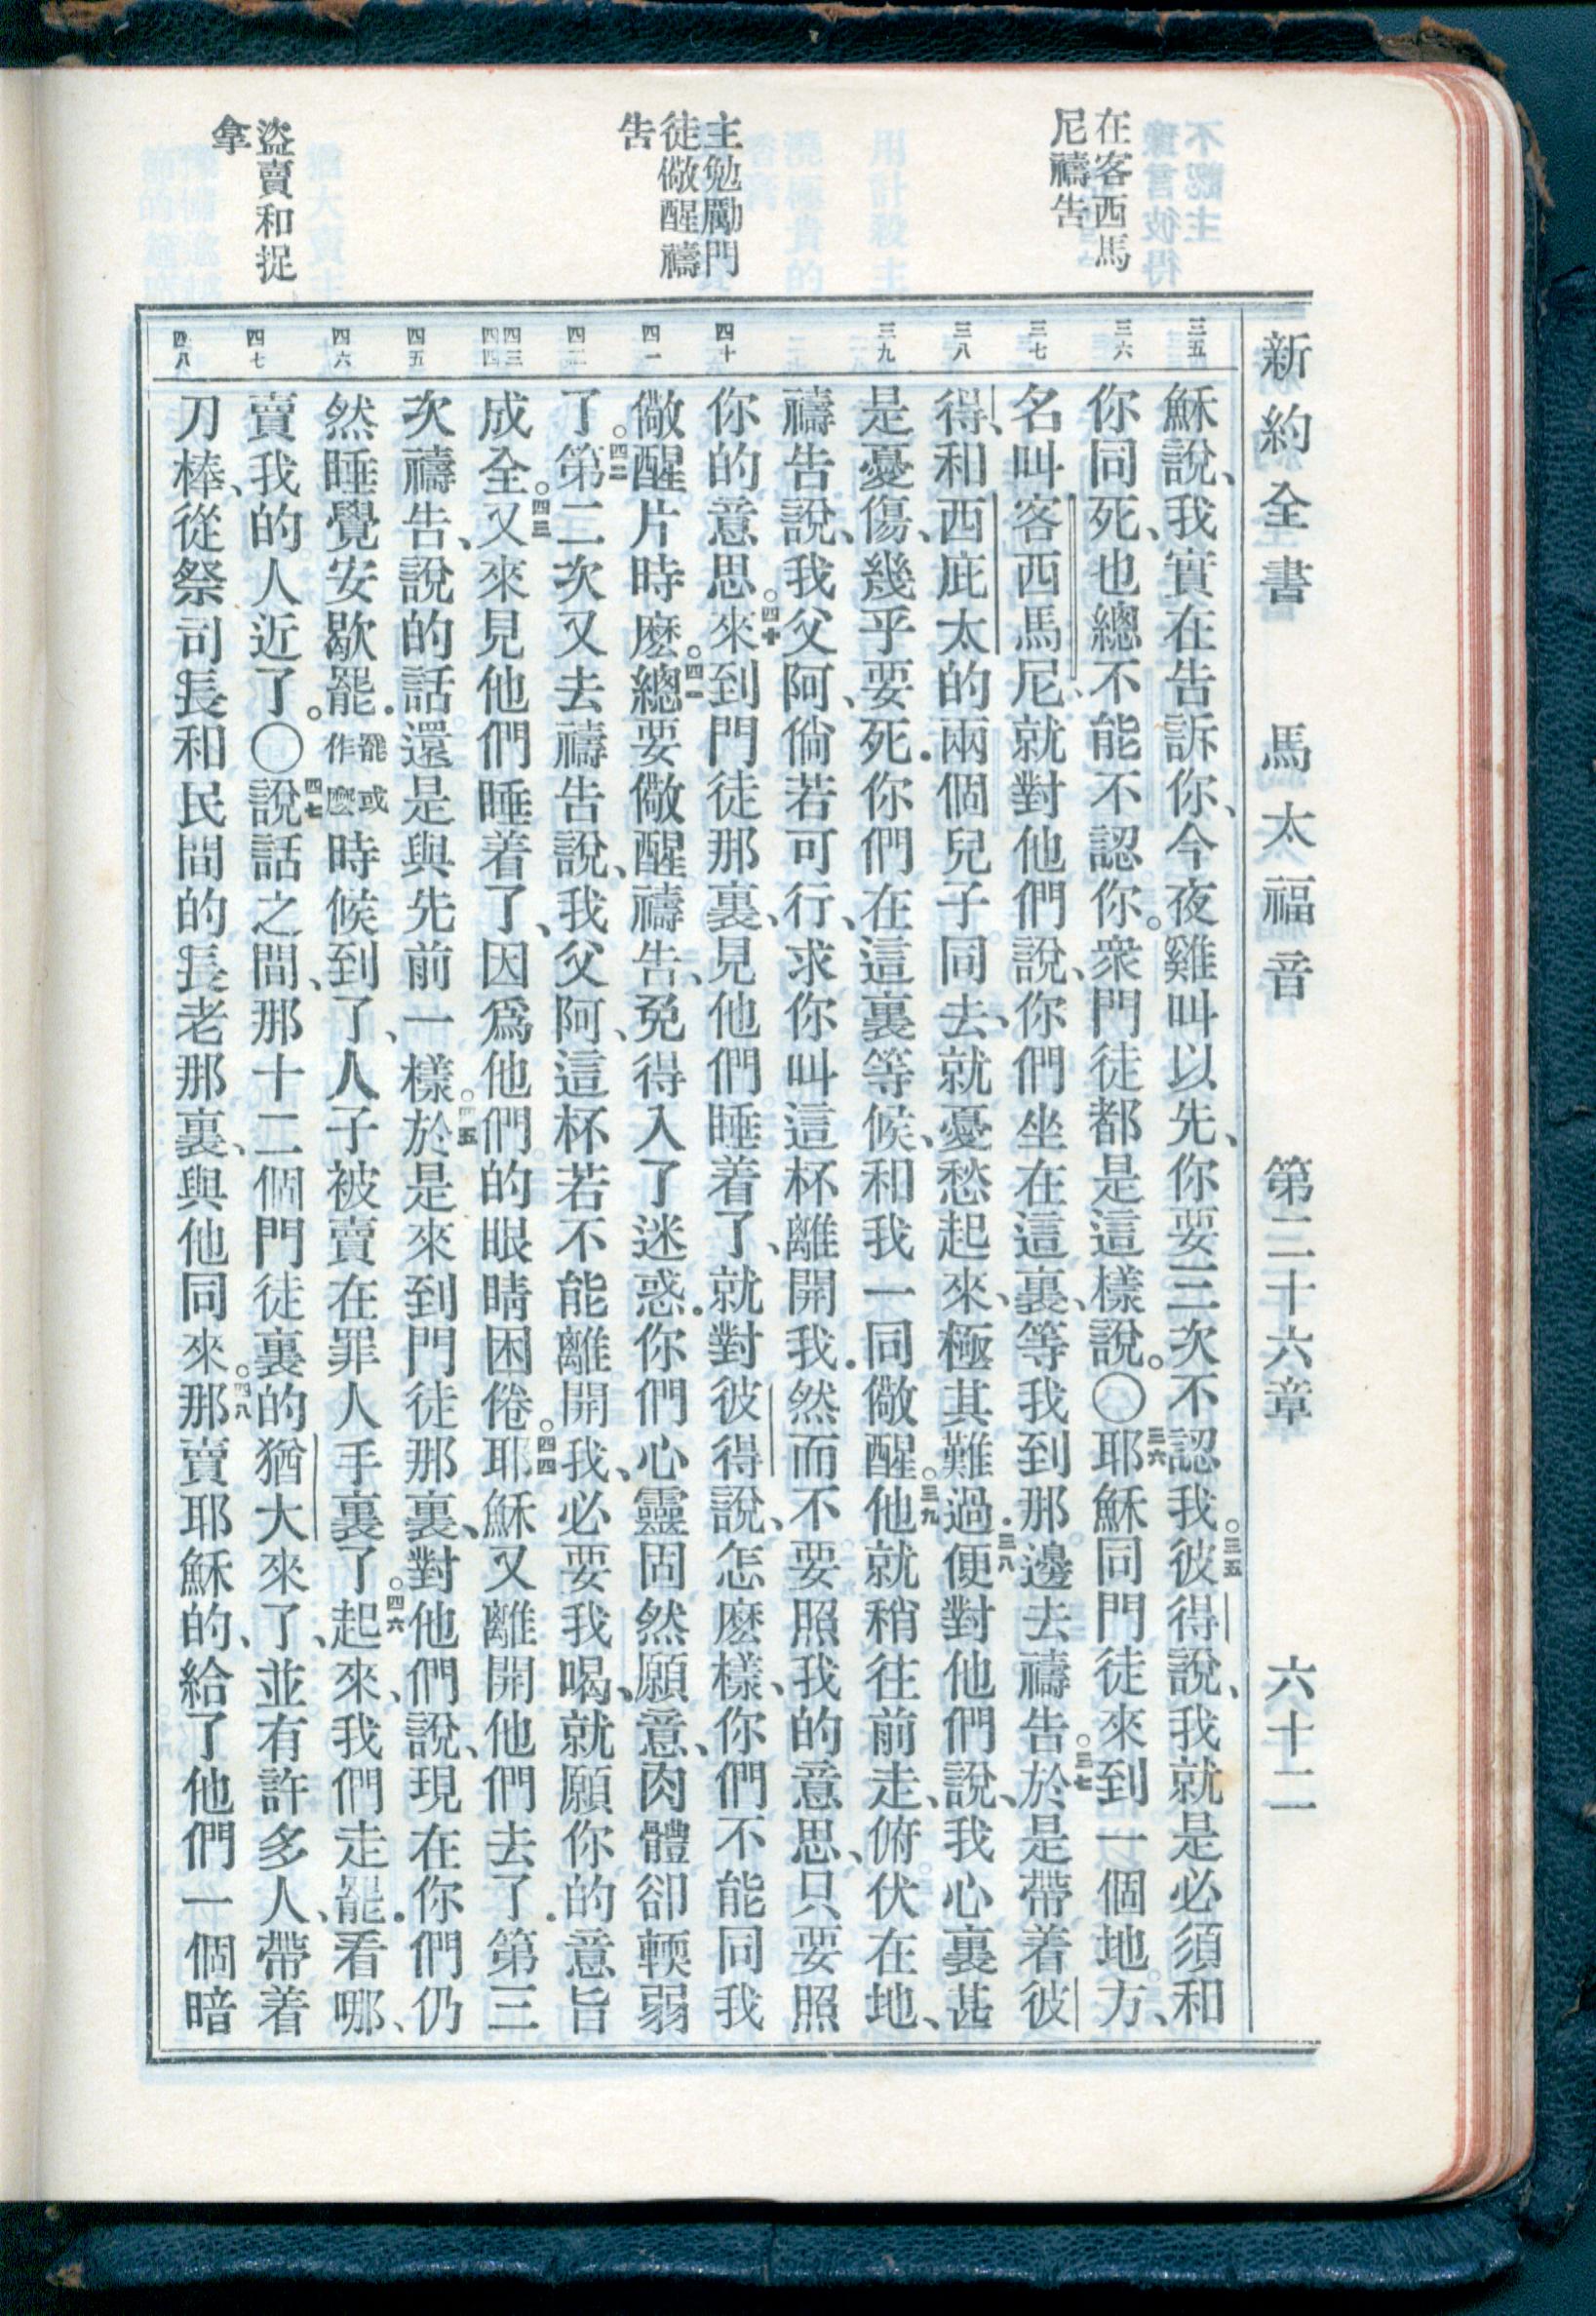 在客西馬
尼禱告
主勉勵門
徒儆醒禱
告
盜賣和捉
拿
新約全書 馬太福音 第二十六章 六十二
三五
三六
三七
三八
三九
四十
四一
四二
四三
四四
四五
四六
四七
四八
穌說、我實在告訴你、今夜雞叫以先、你要三次不認我。三五彼得說、我就是必須和
你同死、也總不能不認你。衆門徒都是這樣說。〇三六耶穌同門徒來到一個地方、
名叫客西馬尼、就對他們說、你們坐在這裏、等我到那邊去禱告。三七於是帶着彼
得、和西庇太的兩個兒子同去、就憂愁起來、極其難過．三八便對他們說、我心裏甚
是憂傷、幾乎要死．你們在這裏等候、和我一同儆醒。三九他就稍往前走、俯伏在地、
禱告說、我父阿、倘若可行、求你叫這杯離開我．然而不要照我的意思、只要照
你的意思。四十來到門徒那裏、見他們睡着了、就對彼得說、怎麽樣、你們不能同我
儆醒片時麽。四一總要儆醒禱告、免得入了迷惑．你們心靈固然願意、肉體卻輭弱
了。四二第二次又去禱告說、我父阿、這杯若不能離開我、必要我喝、就願你的意旨
成全。四三又來見他們睡着了、因爲他們的眼睛困倦。四四耶穌又離開他們去了．第三
次禱告、說的話還是與先前一樣。四五於是來到門徒那裏、對他們說、現在你們仍
然睡覺安歇罷．罷或作麽時候到了、人子被賣在罪人手裏了。四六起來、我們走罷．看哪、
賣我的人近了。〇四七說話之間、那十二個門徒裏的猶大來了、並有許多人、帶着
刀棒、從祭司長和民間的長老那裏、與他同來。四八那賣耶穌的、給了他們一個暗